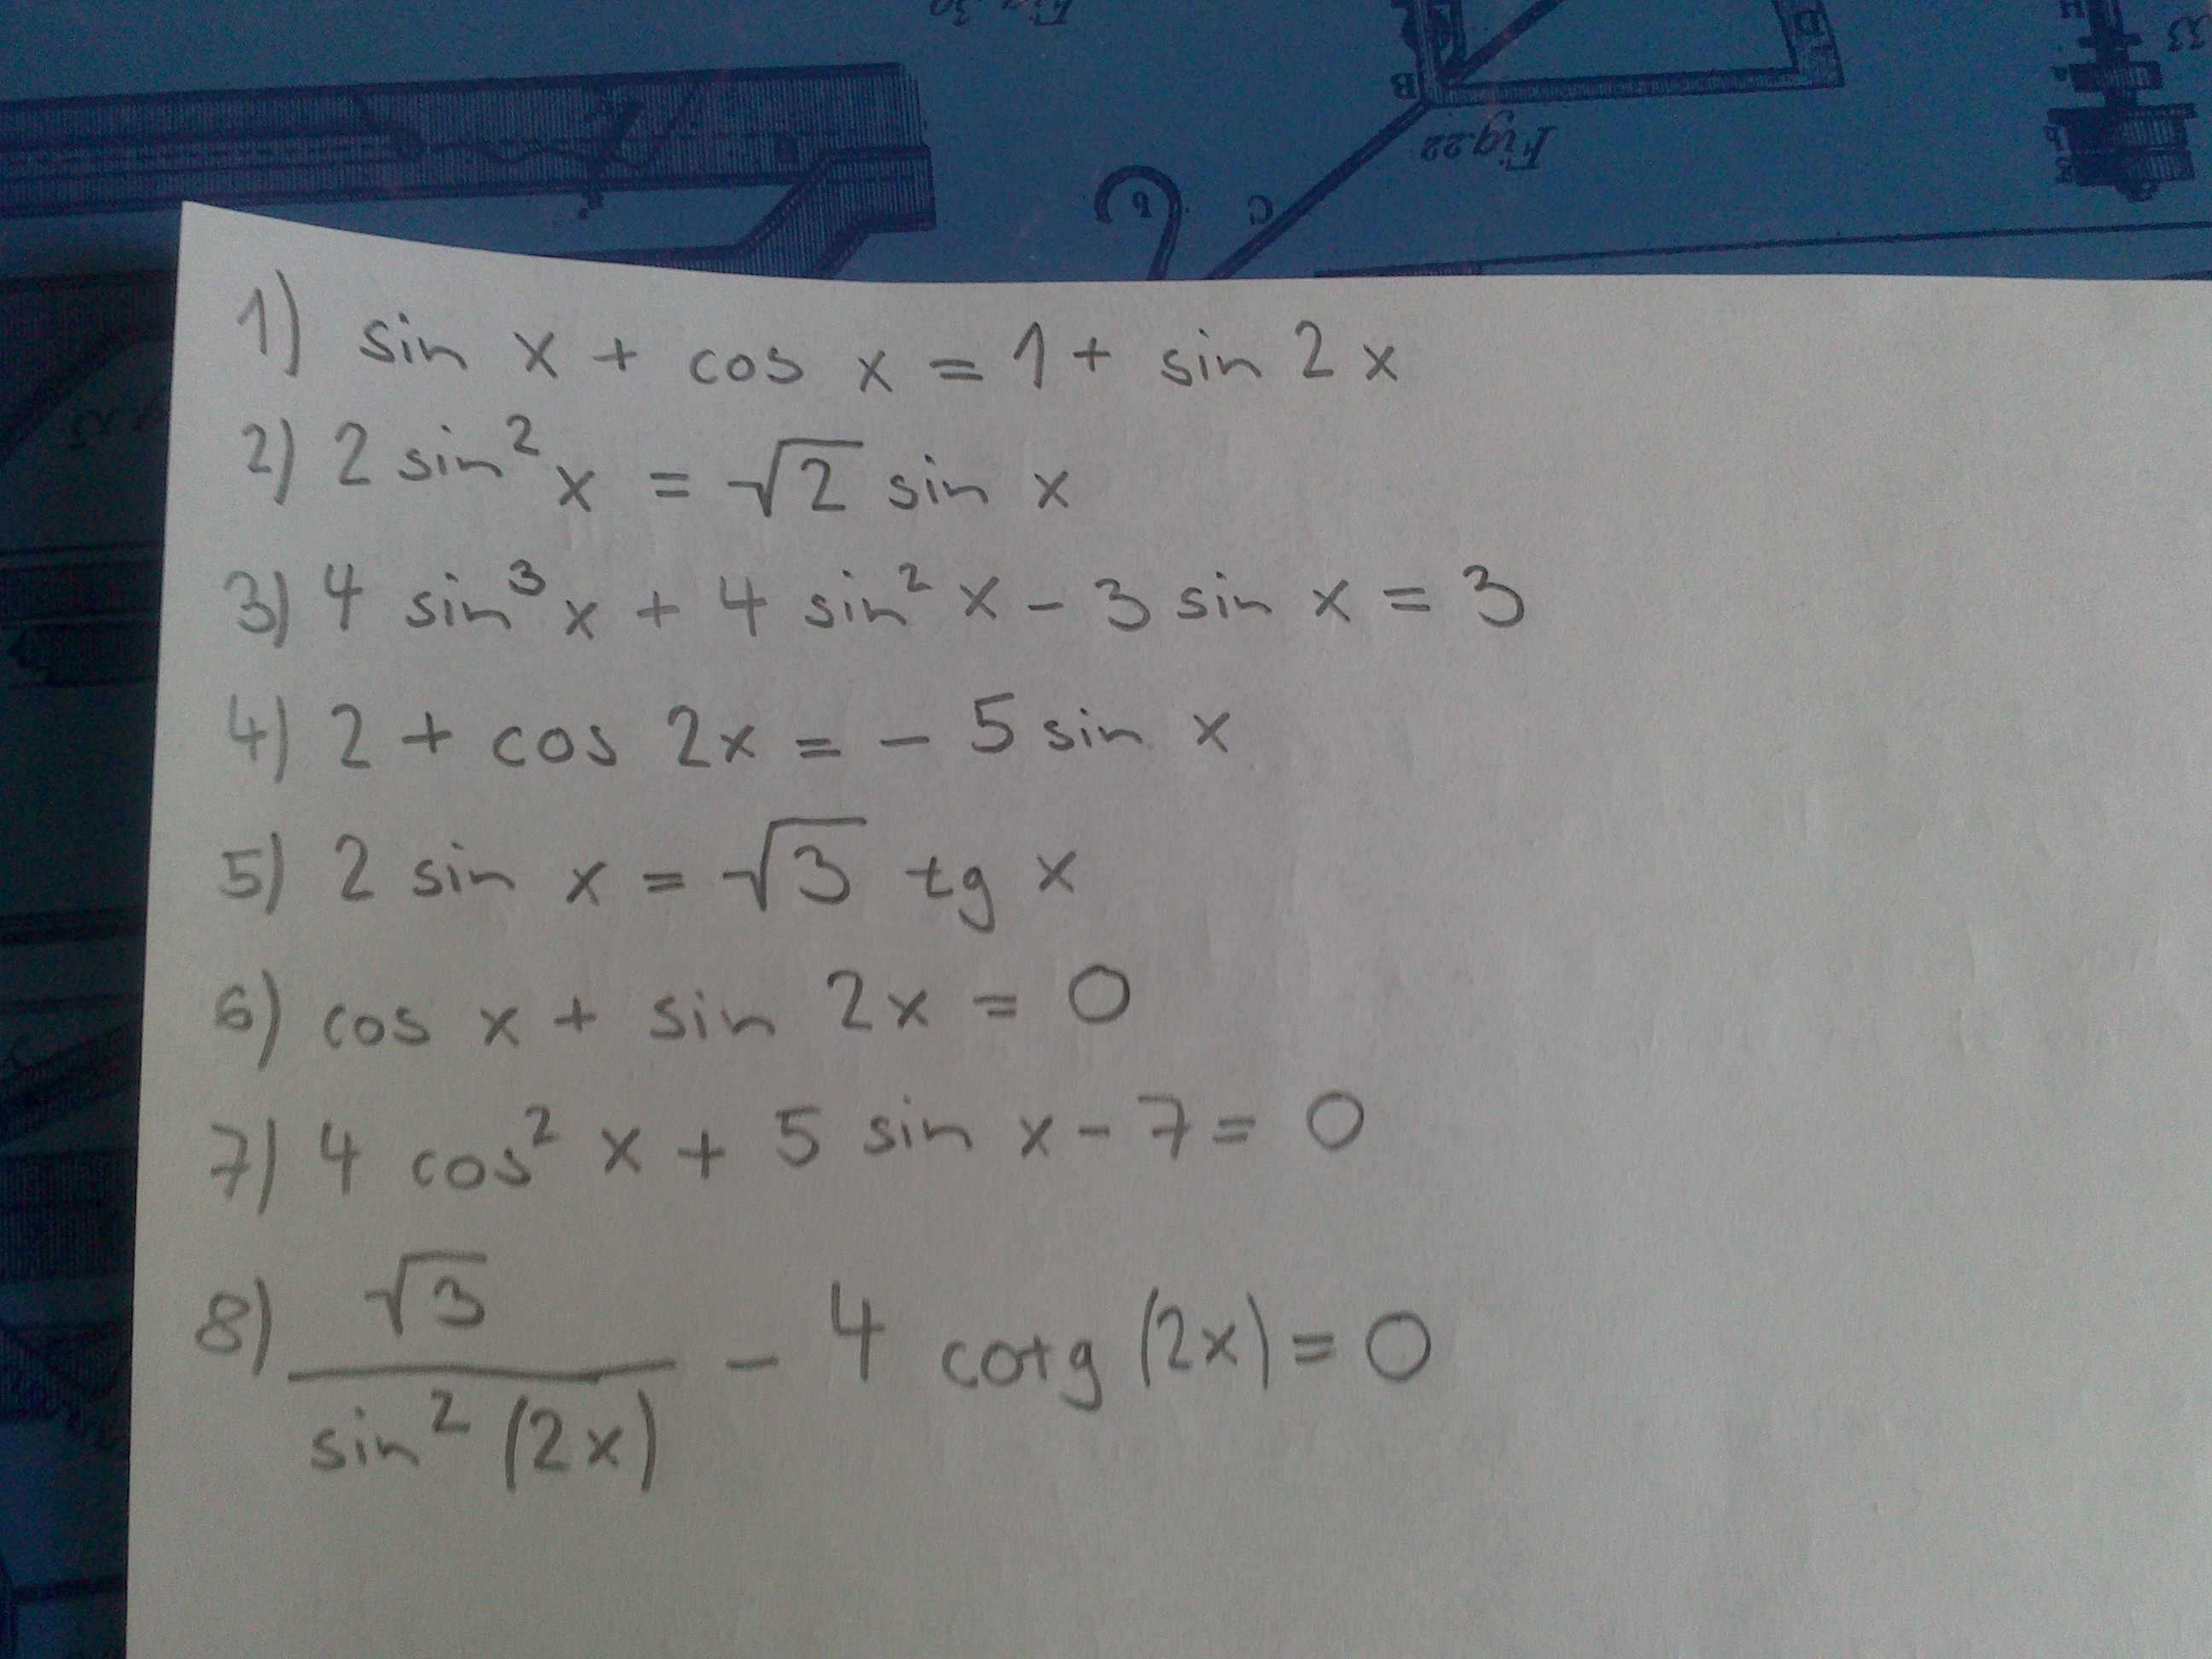 Fig. 30
B
Fig. 22
C
33
1) sin x + cos x = 1 + sin 2x
2) 2 sin² x = √2 sin x
3) 4 sin³ x + 4 sin² x - 3 sin x = 3
4) 2 + cos 2x = - 5 sin x
5) 2 sin x = √3 tg x
6) cos x + sin 2x = 0
7) 4 cos² x + 5 sin x - 7 = 0
8) √3 / sin² (2x) - 4 cotg (2x) = 0